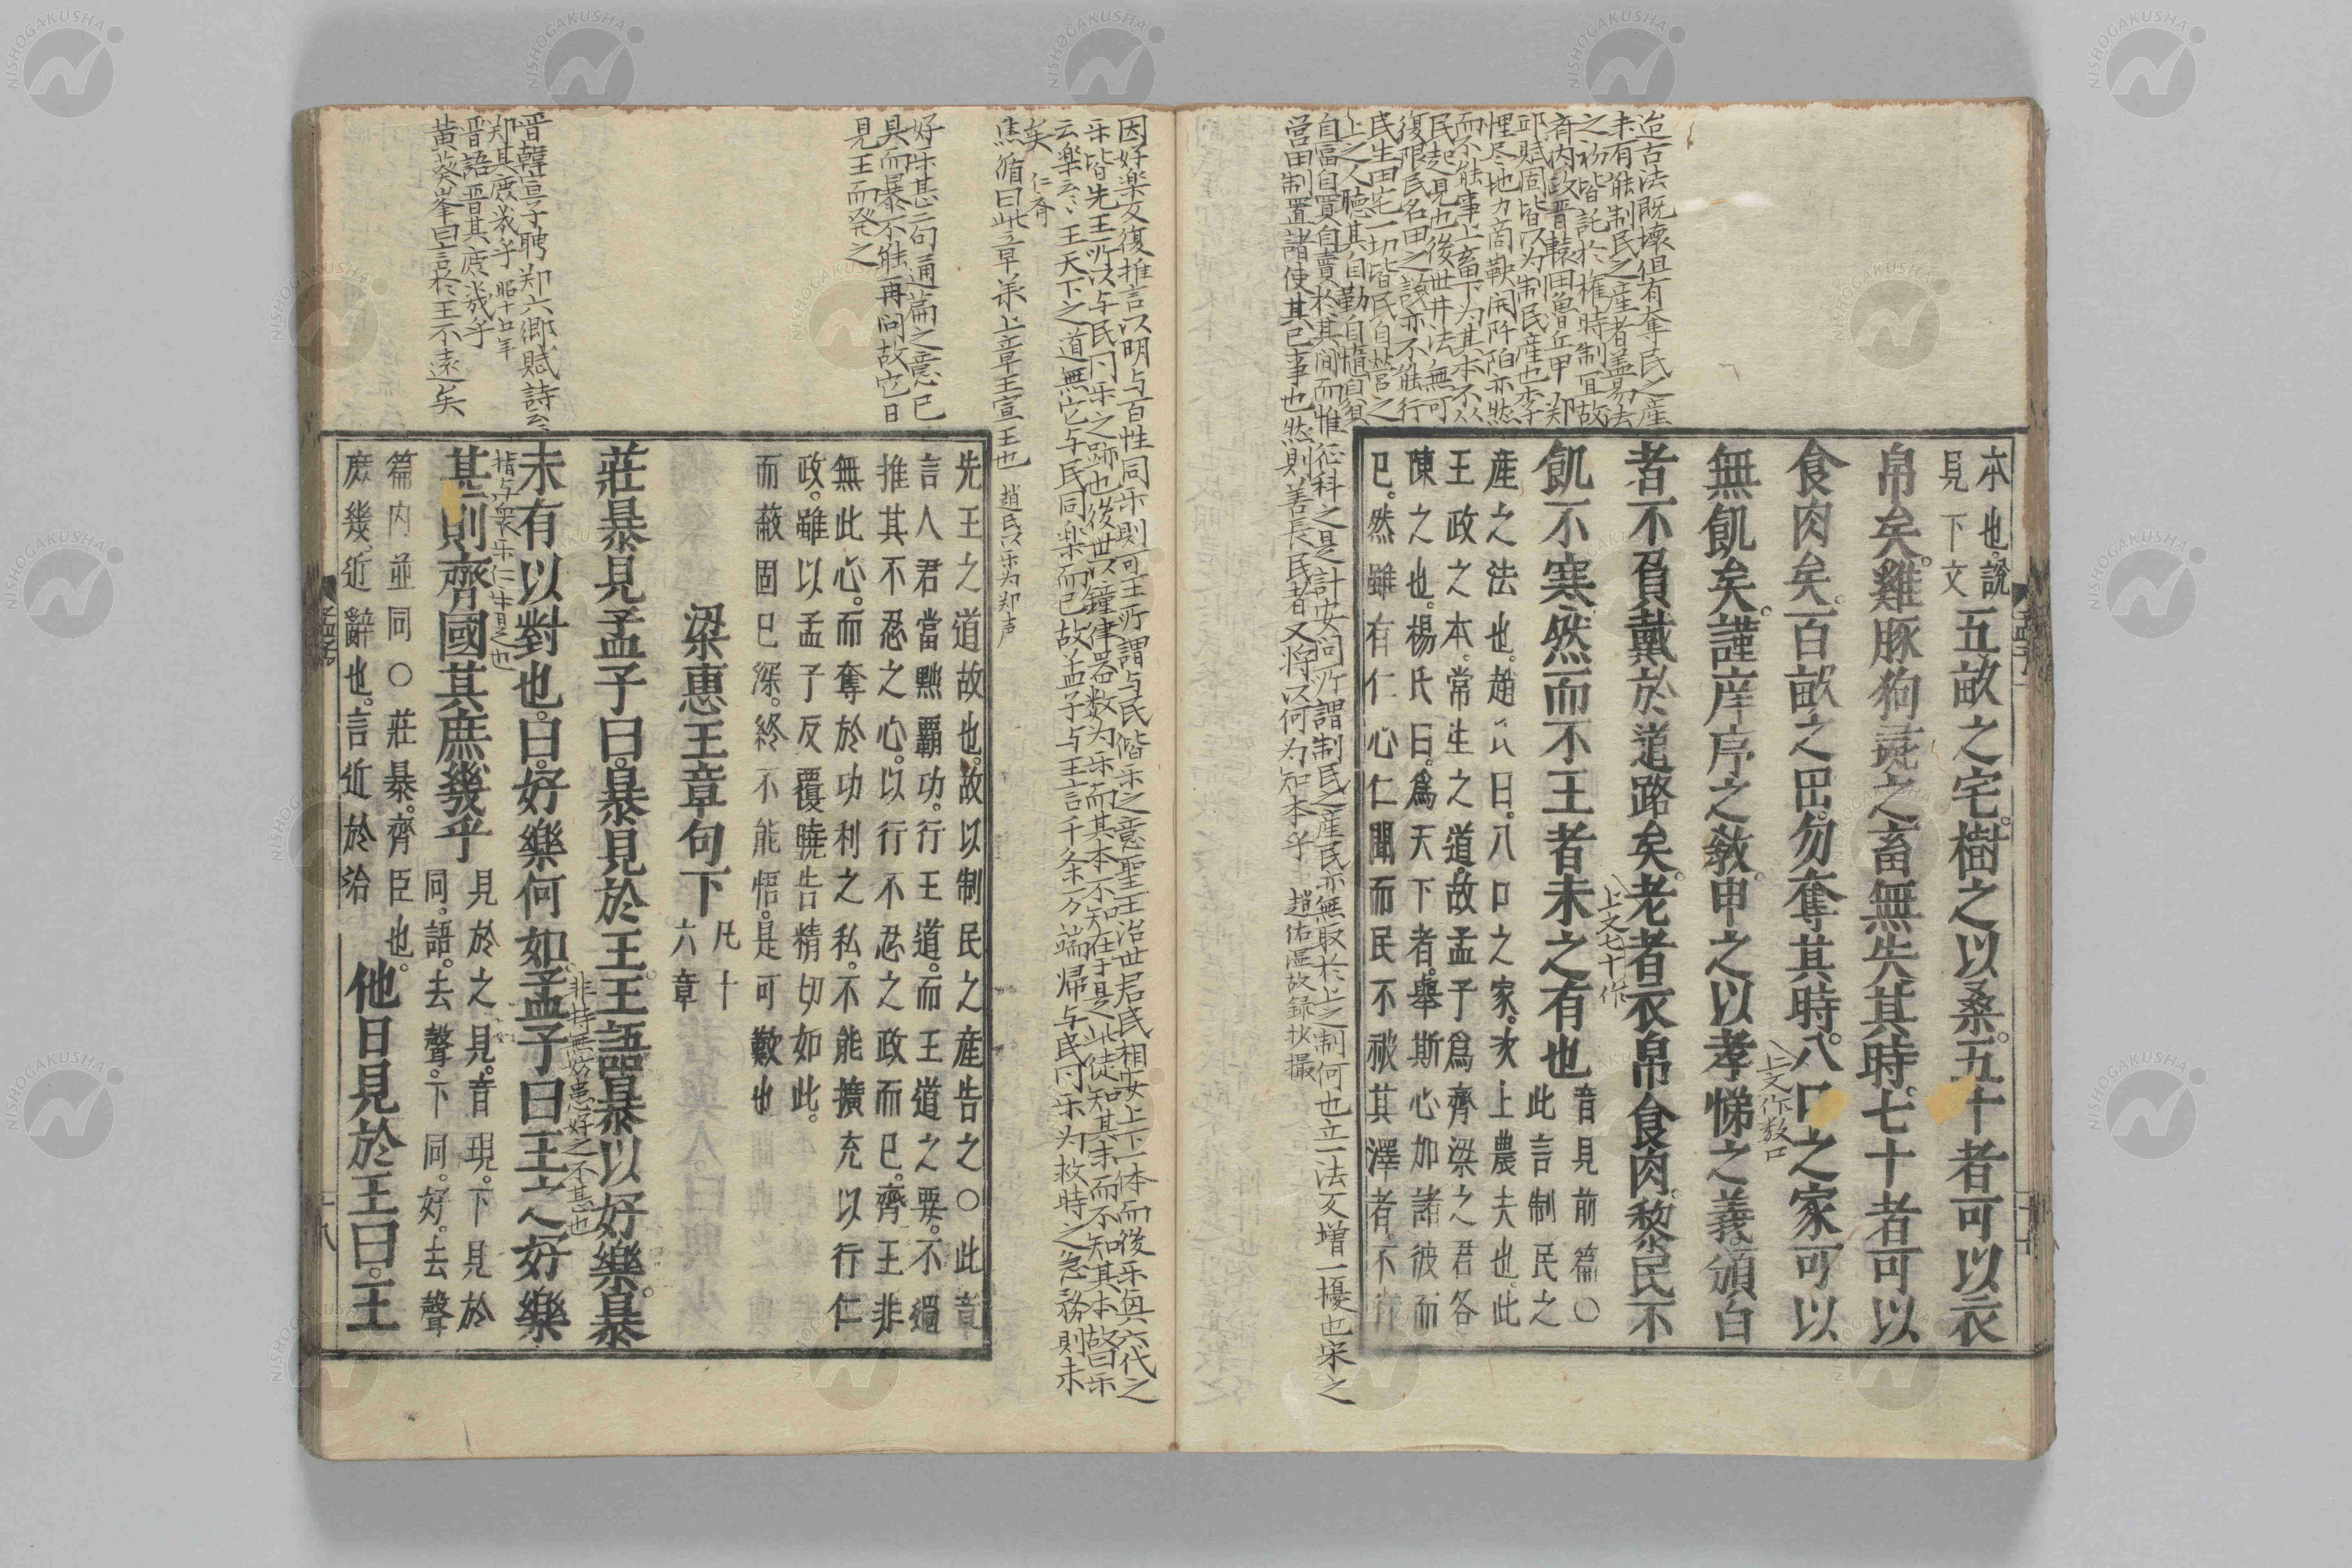 迨古法既壞但有奪民之産
未有能制民之産者蓋易法
之初皆託於権時制宜故
斉内政晋轅田魯丘甲鄭
邱賦固皆以为制民産也李
悝尽地力商鞅開阡陌亦然
而不能事上畜下为其本不以
民起見也後世井法無可
復限民名田之議亦不能行
民生田宅一切皆民自營之
上之人聴其自勤自惰自貧
自富自買自賣於其間而惟征科之是計安问所謂制民之産民亦無取於上之制何也立一法又増一擾也宋之
営田制置諸使其已事也然則善長民者又将以何为知本乎 趙佑温故録抄撮
本也。說
見下文
五畝之宅。樹之以桑。五十者可以衣
帛矣。雞豚狗彘之畜無失其時。七十者可以
食肉矣。百畝之田。勿奪其時。八口之家可以
上文作数口
無飢矣。謹庠序之敎。申之以孝悌之義。頒白
者不負戴於道路矣。老者衣帛食肉。黎民不
上文七十作
飢不寒。然而不王者未之有也
音見前篇○
此言制民之
産之法也。趙氏曰。八口之家。次上農夫也。此
王政之本。常生之道。故孟子爲齊梁之君各
陳之也。楊氏曰。爲天下者。舉斯心加諸彼而
已。然雖有仁心仁聞而民不被其澤者。不行
孟子
因好楽又復推言以明与百性同乐則可王所謂与民偕乐之意聖王治世君民相安上下一体而後乐興六代之
乐皆先王所以与民同乐之跡也後世以鐘律器数为乐而其本不知在于是此徒知其末而不知其本故曰乐
云楽云云王天下之道無它与民同楽而已故孟子与王言千条万端帰与民同乐为救時之急務則未
矣 仁斉
焦循曰此章承上章王宣王也 趙氏以乐为郑声
好乐甚二句通篇之意已
具而暴不能再问故它日
見王而発之
先王之道故也。故以制民之産告之○此章
言人君當黜霸功。行王道。而王道之要。不過
推其不忍之心。以行不忍之政而已。齊王非
無此心。而奪於功利之私。不能擴充以行仁
政。雖以孟子反覆曉告精切如此。
而蔽固已深。終不能悟。是可歎也
梁惠王章句下
凡十
六章
莊暴見孟子曰。暴見於王。王語暴以好樂。暴
非特無妨患好之不甚也
未有以對也。曰。好樂何如。孟子曰王之好樂
指与衆乐仁斗目之也
甚。則齊國其庶幾乎
見於之見。音現。下見於
同。語。去聲。下同。好。去聲
篇内並同○莊暴。齊臣也。
庶幾。近辭也。言近於治
他日見於王曰。王
晋韓宣子聘郑六卿賦詩云
郑其庶幾乎 昭十六年
晋語晋其庶幾乎
黄葵峯曰言於王不遠矣
孟子
十八